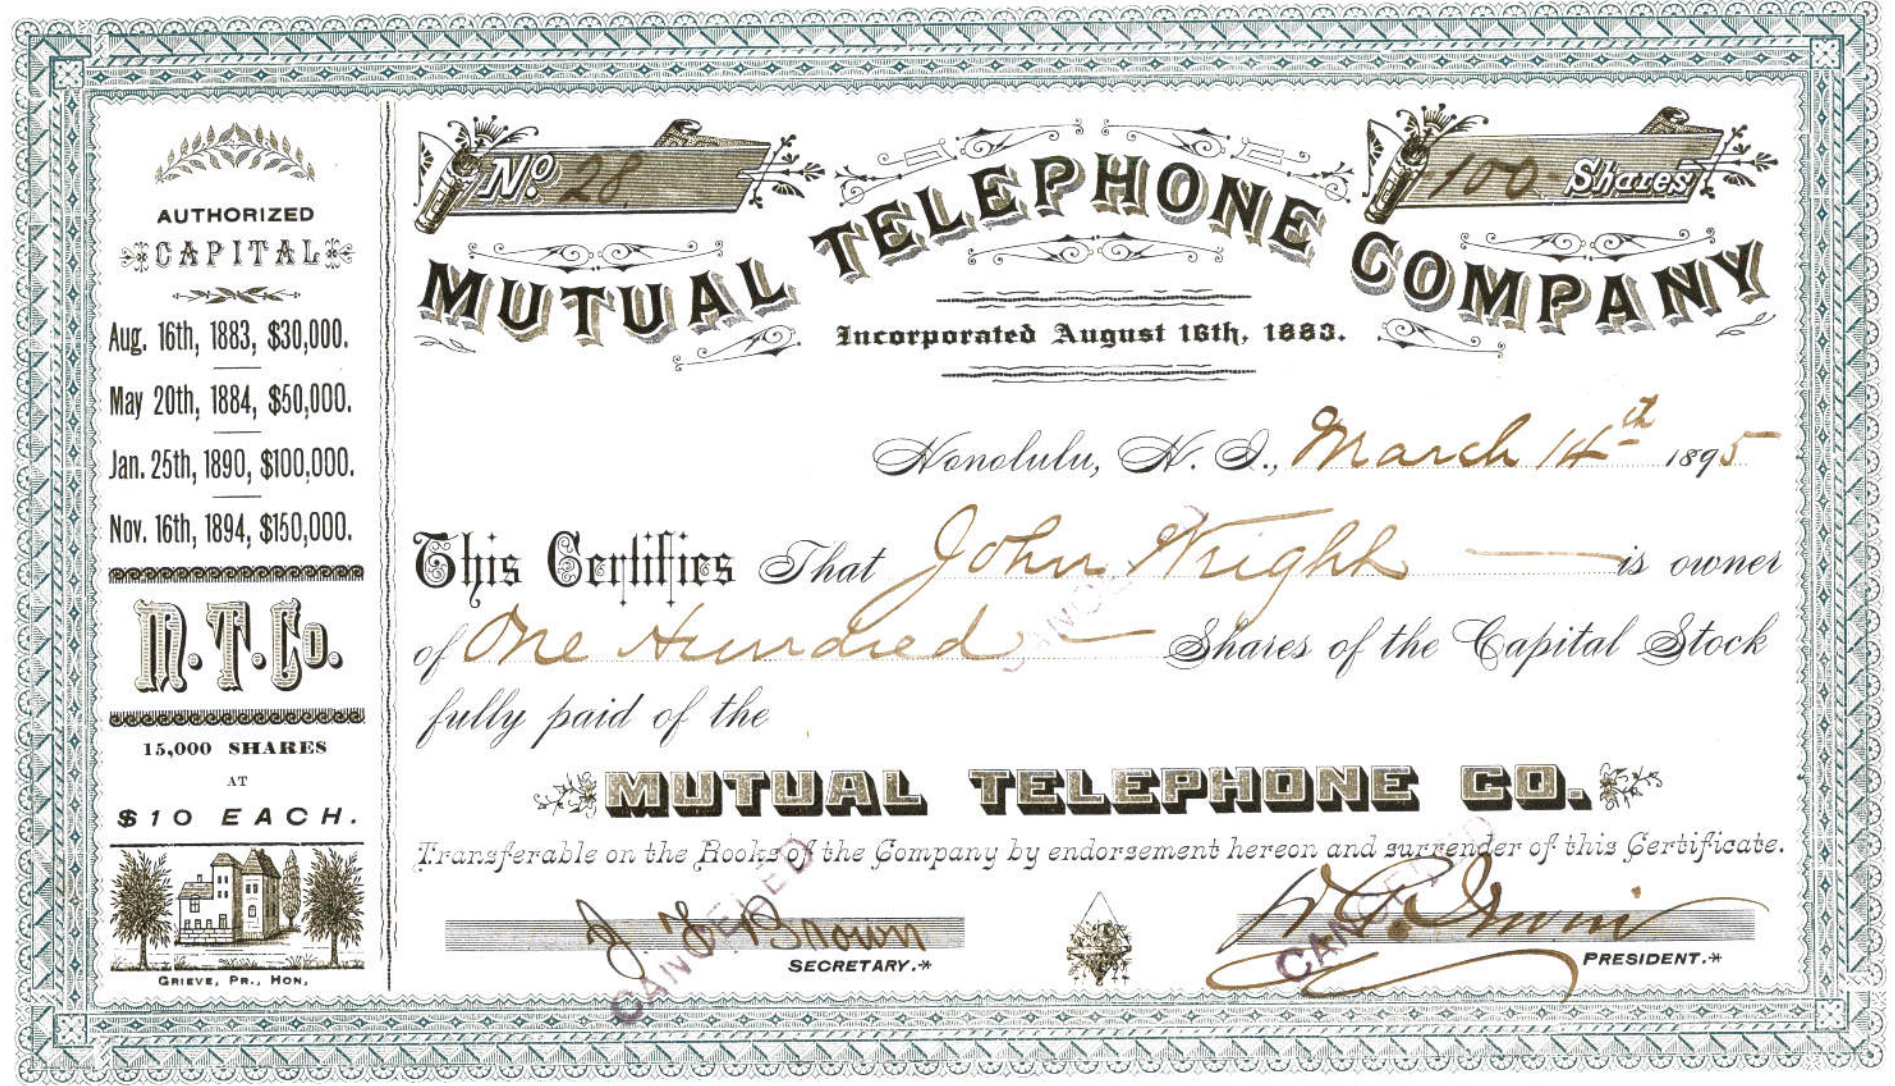 AUTHORIZED
CAPITAL
Aug. 16th, 1883, $30,000.
May 20th, 1884, $50,000.
Jan. 25th, 1890, $100,000.
Nov. 16th, 1894, $150,000.
M. T. Co.
15,000 SHARES
AT
$10 EACH.
GRIEVE, PR., HON.
No. 28.
-100- Shares
MUTUAL TELEPHONE COMPANY
Incorporated August 16th, 1883.
Honolulu, H. I., March 14th 1895
This Certifies That John Wright — is owner
of One Hundred — Shares of the Capital Stock
fully paid of the
MUTUAL TELEPHONE CO.
Transferable on the Books of the Company by endorsement hereon and surrender of this Certificate.
J. F. Brown
SECRETARY.*
Irwin
PRESIDENT.*
CANCELLED
CANCELLED
CANCELLED